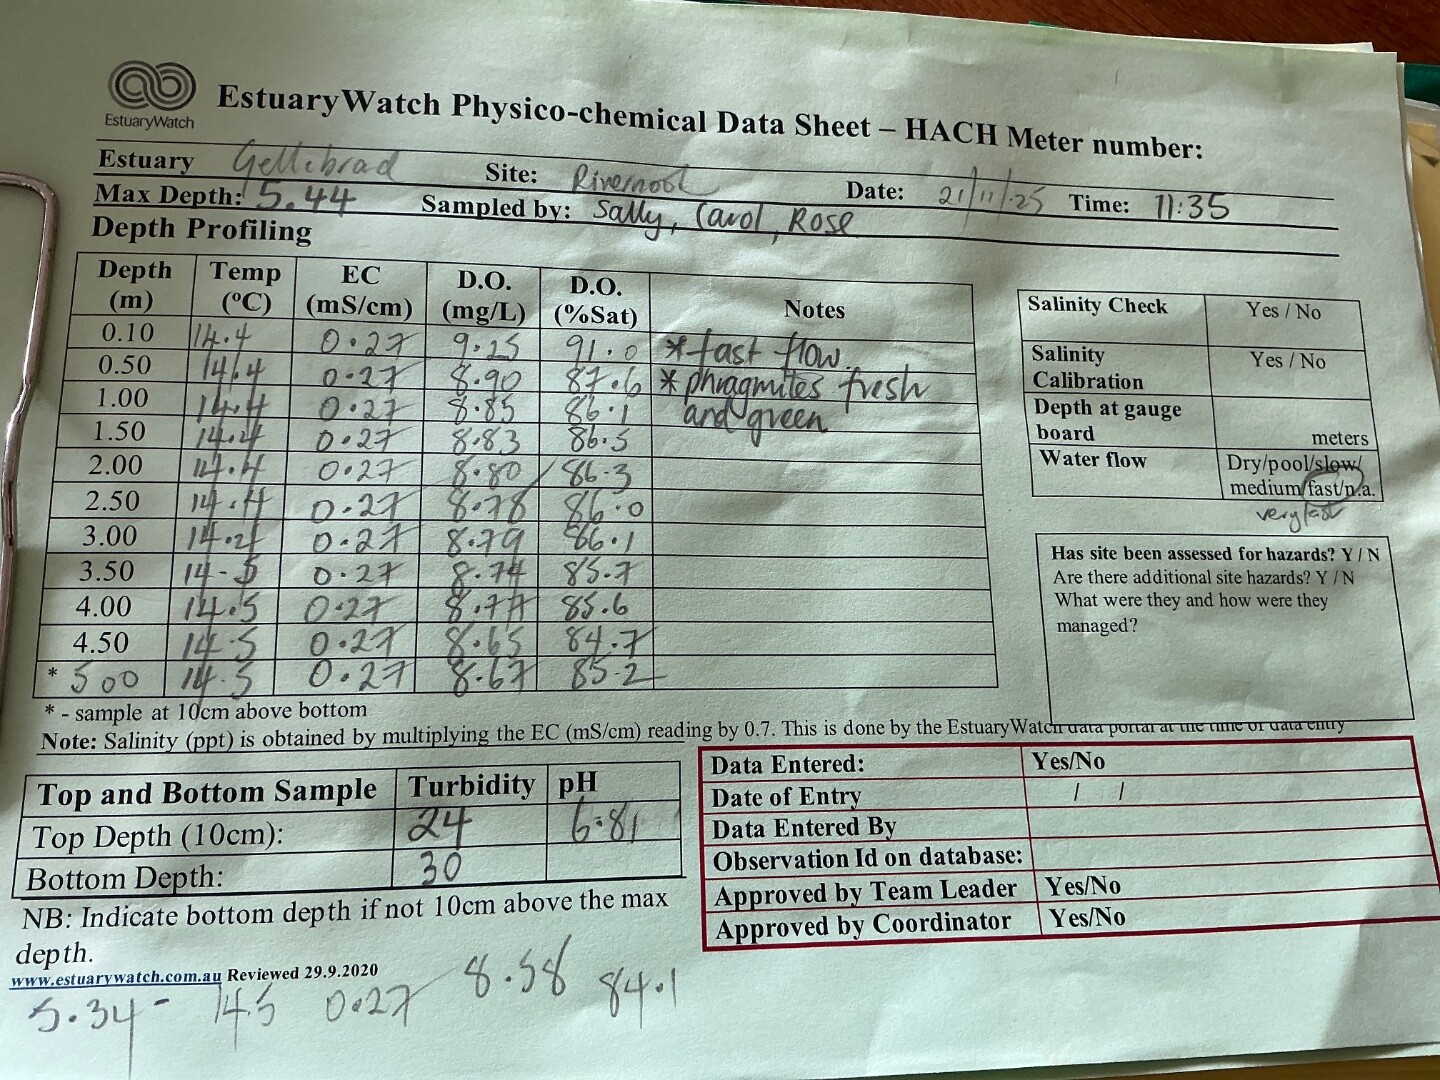 EstuaryWatch
EstuaryWatch Physico-chemical Data Sheet – HACH Meter number:
Estuary Gellibrad Site: Date: 21/11/25 Time: 11:35
Max Depth: 5.44 Sampled by: Sally, Carol, Rose
Depth Profiling
Depth (m) Temp (ºC) EC (mS/cm) D.O. (mg/L) D.O. (%Sat) Notes
0.10 14.4 0.27 9.25 91.0 *fast flow.
0.50 14.4 0.27 8.90 87.6 *phragmites fresh
1.00 14.4 0.27 8.85 86.1 and green
1.50 14.4 0.27 8.83 86.5
2.00 14.4 0.27 8.80 86.3
2.50 14.4 0.27 8.78 86.0
3.00 14.4 0.27 8.79 86.1
3.50 14.5 0.27 8.74 85.7
4.00 14.5 0.27 85.6
4.50 14.5 0.27 8.65 84.7
* 5.00 14.5 0.27 8.67 85.2
* - sample at 10cm above bottom
Note: Salinity (ppt) is obtained by multiplying the EC (mS/cm) reading by 0.7. This is done by the EstuaryWatch data portal at the time of data entry
Salinity Check Yes / No
Salinity Calibration Yes / No
Depth at gauge board meters
Water flow Dry/pool/slow/
medium/fast/n.a.
very fast
Has site been assessed for hazards? Y / N
Are there additional site hazards? Y / N
What were they and how were they
managed?
Top and Bottom Sample Turbidity pH
Top Depth (10cm): 24 6.81
Bottom Depth: 30
NB: Indicate bottom depth if not 10cm above the max
depth.
www.estuarywatch.com.au Reviewed 29.9.2020
5.34 - 14.5 0.27 8.58 84.1
Data Entered: Yes/No
Date of Entry / /
Data Entered By
Observation Id on database:
Approved by Team Leader Yes/No
Approved by Coordinator Yes/No